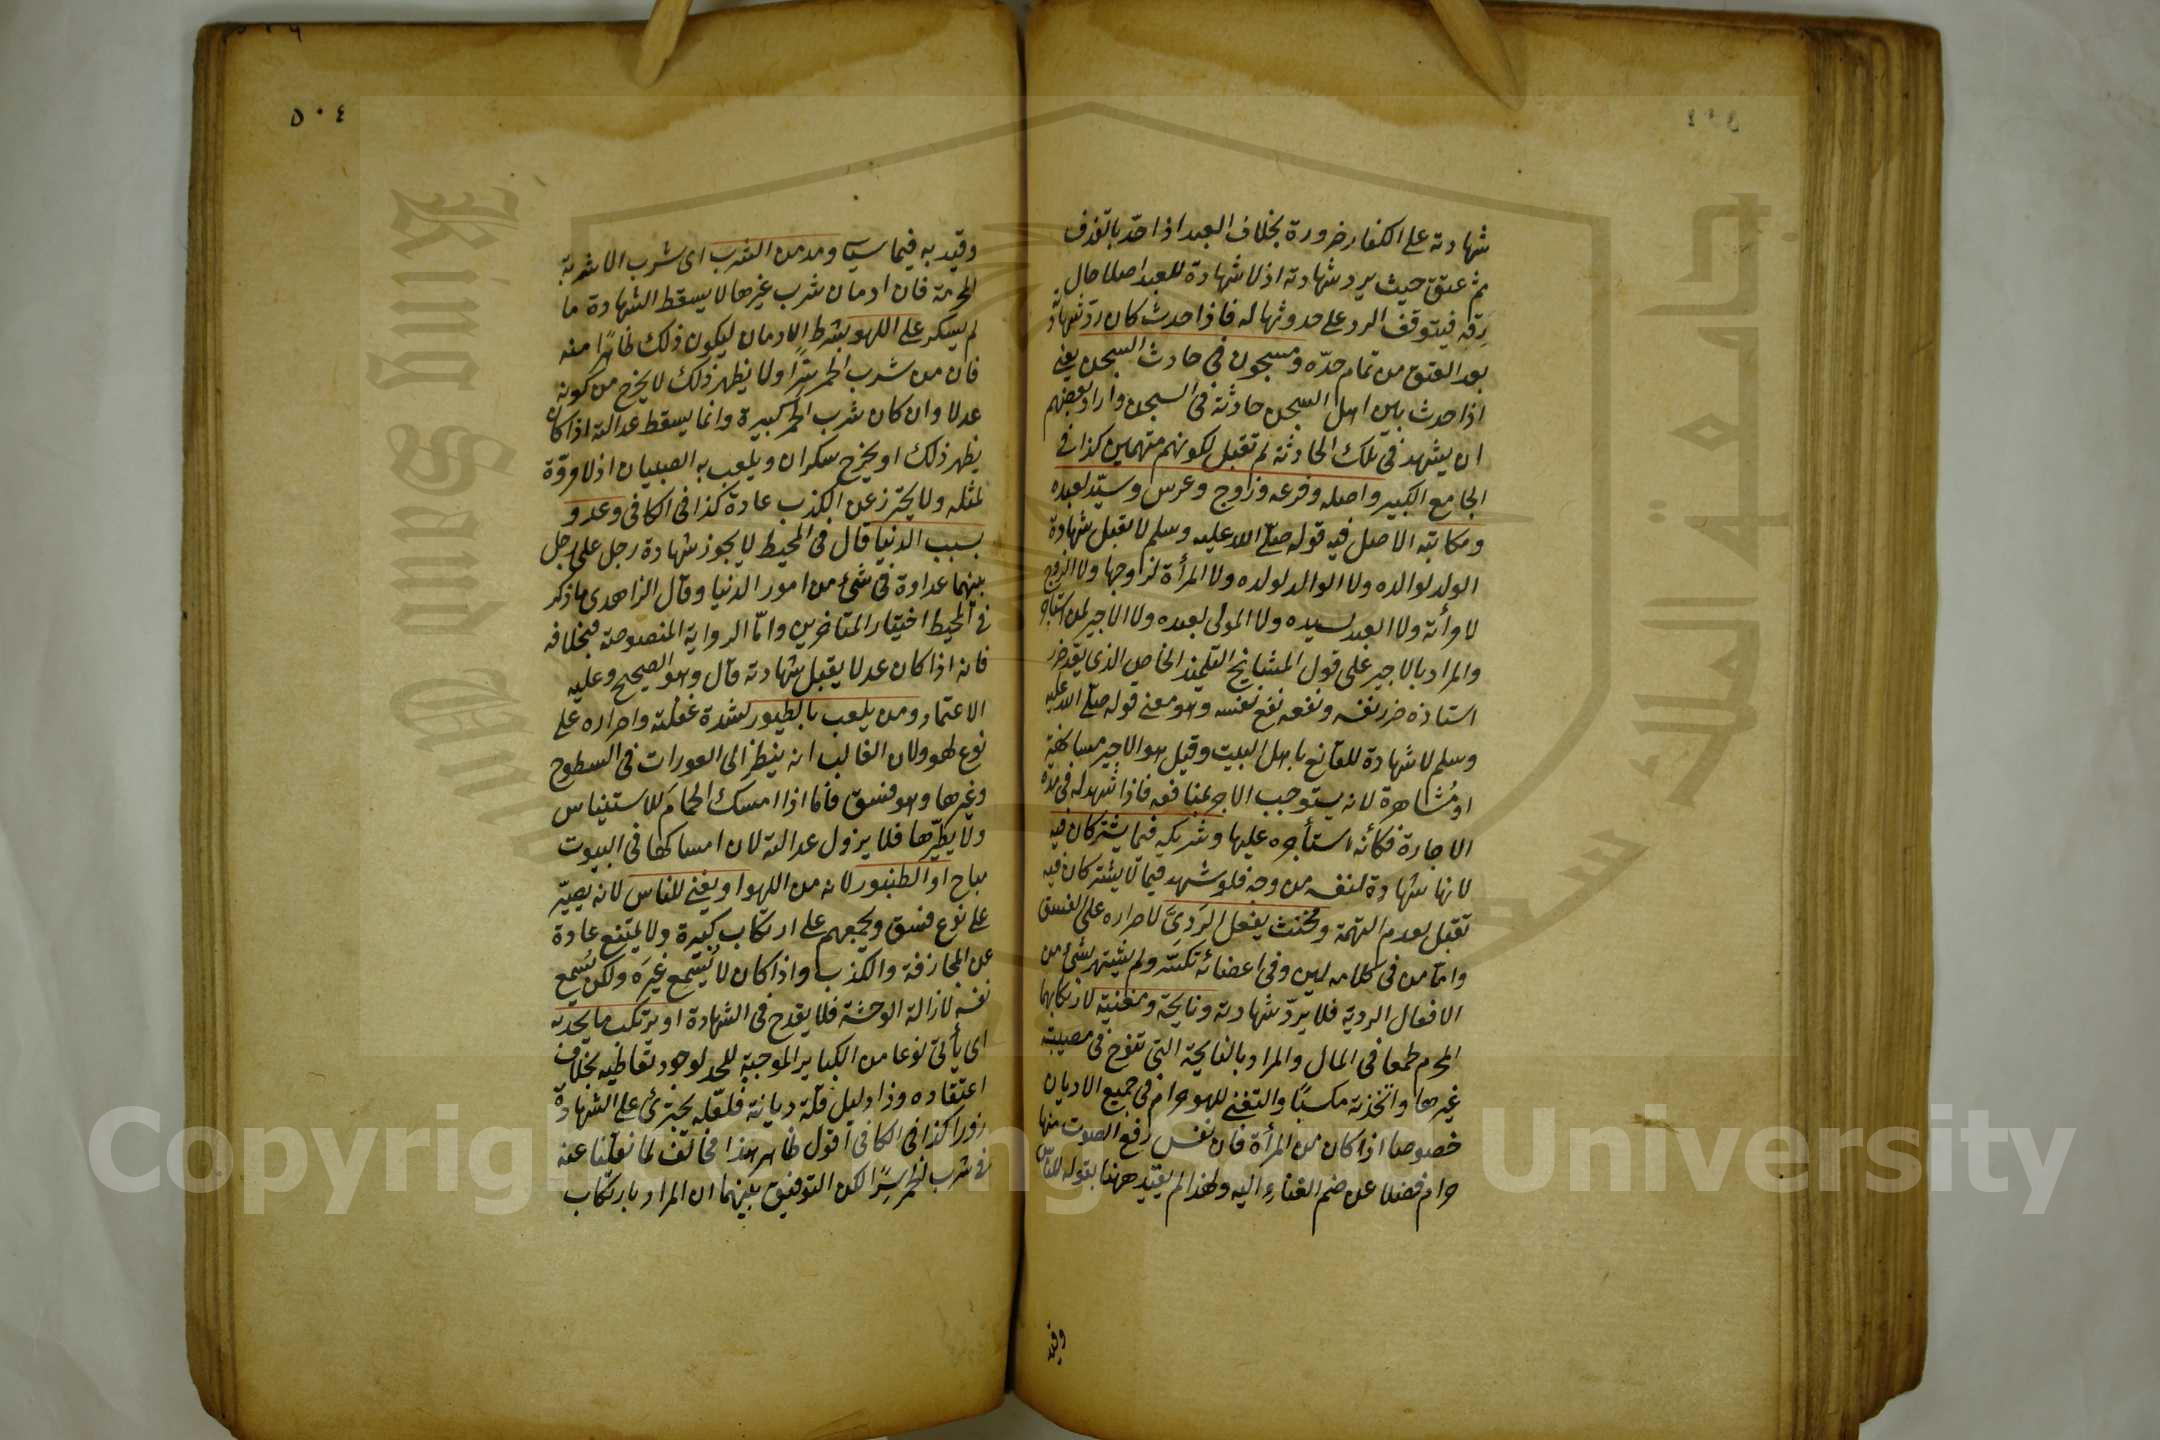 شهادته على الكفار ضرورة بخلاف العبد اذا حدّ بالقذف
ثم عتق حيث يرد شهادته اذ لا شهادة للعبد اصلا حال
رقّه فيتوقف الرد على حدوثها له فاذا حدث كان ردّ شهادته
بعد العتق من تمام حدّه ومسجون فى حادث السجن يعنى
اذا حدث بين اهل السجن حادثة فى السجن واراد بعضهم
ان يشهد فى تلك الحادثة لم تقبل لكونهم متهمين كذا فى
الجامع الكبير واصله وفرعه وزوج وعرس وسيّد لعبده
ومكاتبه الاصل فيه قوله صلى الله عليه وسلم لا تقبل شهادة
الولد لوالده ولا الوالد لولده ولا المرأة لزوجها ولا الزوج
لامرأته ولا العبد لسيده ولا المولى لعبده ولا الاجير لمن استأجره
والمراد بالاجير على قول المشايخ التلميذ الخاص الذى يعد ضرر
استاذه ضرر نفسه ونفعه نفع نفسه وهو معنى قوله صلى الله عليه
وسلم لا شهادة للقانع باهل البيت وقيل هو الاجير مسانهة
او مُشاهرة لانه يستوجب الاجر بمنافعه فاذا شهد له فى مدة
الاجارة فكأنه استأجره عليها وشريكه فيما يشتركان فيه
لانها شهادة لنفسه من وجه فلو شهد فيما لا يشتركان فيه
تقبل لعدم التهمة ومخنث يفعل الرَدِىَّ لاصراره على الفسق
وامّا من فى كلامه لين وفى اعضائه تكسّر ولم يشتهر بشئ من
الافعال الردية فلا يردّ شهادته ونايحة ومغنية لارتكابهما
المحرم طمعا فى المال والمراد بالنايحة التى تنوح فى مصيبة
غيرها واتخذته مكسبًا والتغنى للهو حرام فى جميع الاديان
خصوصا اذا كان من المرأة فان نفس رفع الصوت منها
حرام فضلا عن ضم الغناء اليه ولهذا لم يقيّد ههنا بقوله للناس
وقيد
٥٠٤
وقيد به فيما سيأ ومدمن الشرب اى شرب الاشربة
المحرمة فان ادمان شرب غيرها لا يسقط الشهادة ما
لم يسكر على اللهو بشرط الادمان ليكون ذلك ظاهرًا منه
فان من شرب الخمر سرًّا ولا يظهر ذلك لا يخرج من كونه
عدلا وان كان شرب الخمر كبيرة وانما يسقط عدالته اذا كان
يظهر ذلك او يخرج سكران ويلعب به الصبيان اذ لا مروة
لمثله ولا يحترز عن الكذب عادة كذا فى الكافى وعدو
بسبب الدنيا قال فى المحيط لا يجوز شهادة رجل على رجل
بينهما عداوة فى شئ من امور الدنيا وقال الزاهدى ما ذكر
فى المحيط اختيار المتأخرين وامّا الرواية المنصوصة فبخلافه
فانه اذا كان عدلا يقبل شهادته قال وهو الصحيح وعليه
الاعتماد ومن يلعب بالطيور لشدة غفلته واصراره على
نوع لهو ولان الغالب انه ينظر الى العورات فى السطوح
وغيرها وهو فسق فاما اذا امسك الحمام للاستيناس
ولا يطيّرها فلا يزول عدالته لان امساكها فى البيوت
مباح او الطنبور لانه من اللهو او يغنى للناس لانه يصيّر
على نوع فسق ويجمعهم على ارتكاب كبيرة ولا يمتنع عادة
عن المجازفة والكذب واذا كان لا يُسْمِع غيرَه ولكن يُسمِع
نفسه لازالة الوحشة فلا يقدح فى الشهادة او يرتكب ما يحد به
اى يأتى نوعا من الكبائر الموجبة للحد لوجود تعاطيه بخلاف
اعتقاده وذا دليل قلّة ديانة فلعّله يجترئ على الشهادة
زورا كذا فى الكافى اقول ظاهر هذا مخالف لما نقلنا عنه
فى شرب الخمر سرًّا لكن التوفيق بينهما ان المراد بارتكاب
جامعة الملك سعود
King Saud University
Copyright © King Saud University